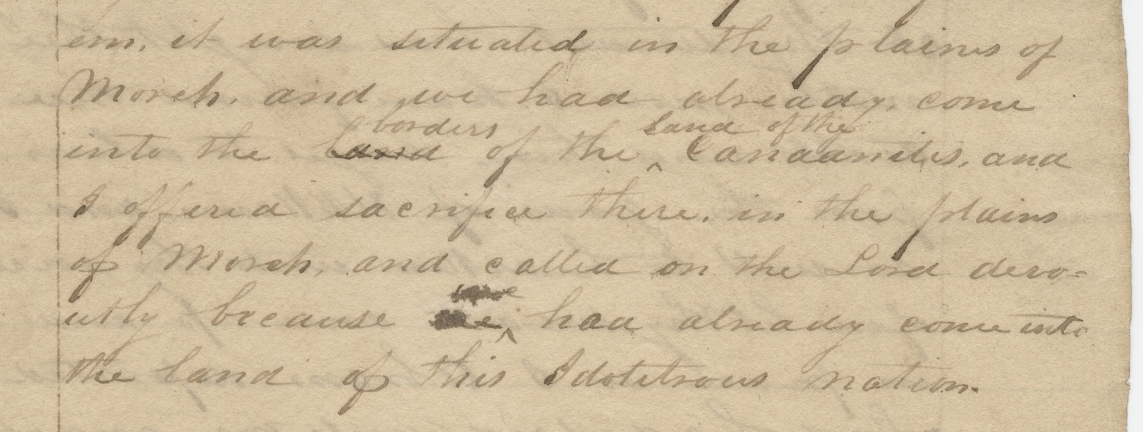 em, it was situated in the plains of
Moreh, and we had already, come
borders land of the
into the land of the ^ Canaanites, and
I offered sacrifice there, in the plains
of Moreh, and called on the Lord devo=
we
utly because ^ had already come into
the land of this Idolitrous nation.